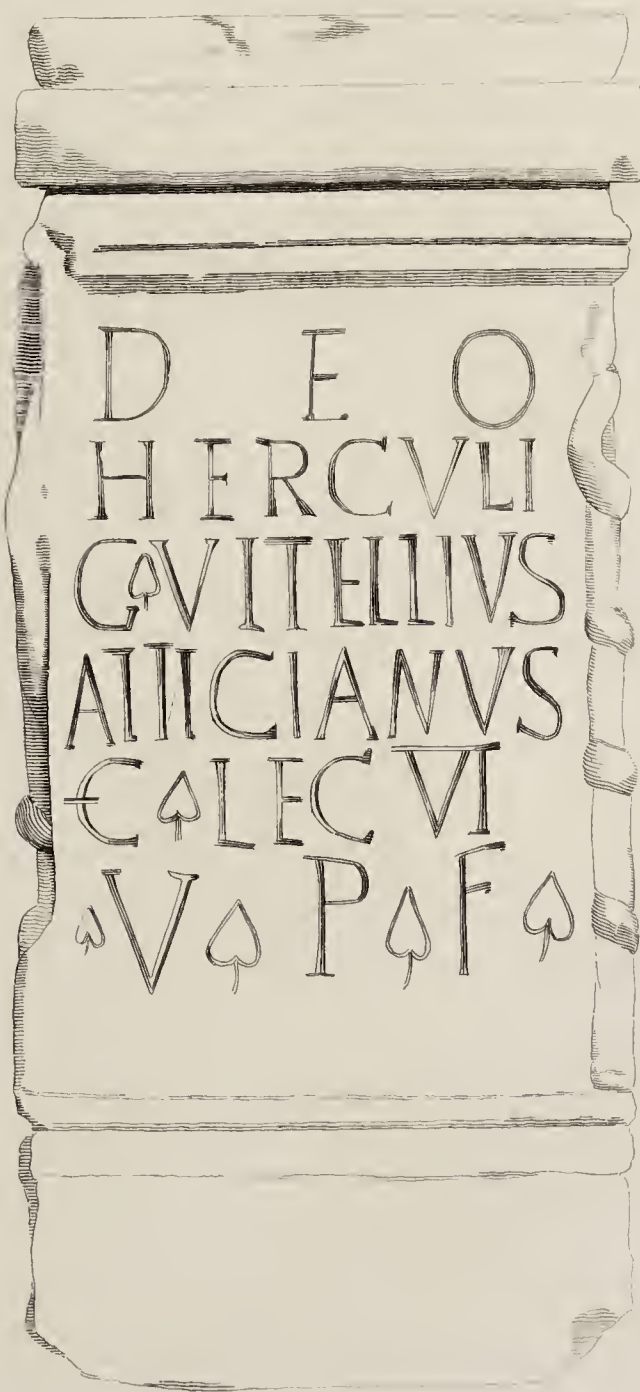 DEO
HERCVLI
G❧VITELLIVS
ATTICIANVS
Ɔ❧LEG VI
❧V❧P❧F❧